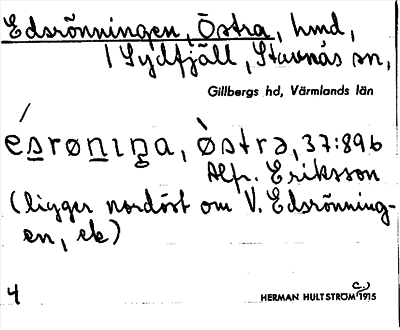 Edsrönningen, Östra, hmd,
i Sydfjäll, Stavnäs sn,
Gillbergs hd, Värmlands län
esrønıŋa, østra, 37:896
Alfr. Eriksson
(ligger nordöst om V. Edsrönning-
en, ek)
4
HERMAN HULTSTRÖM 1915